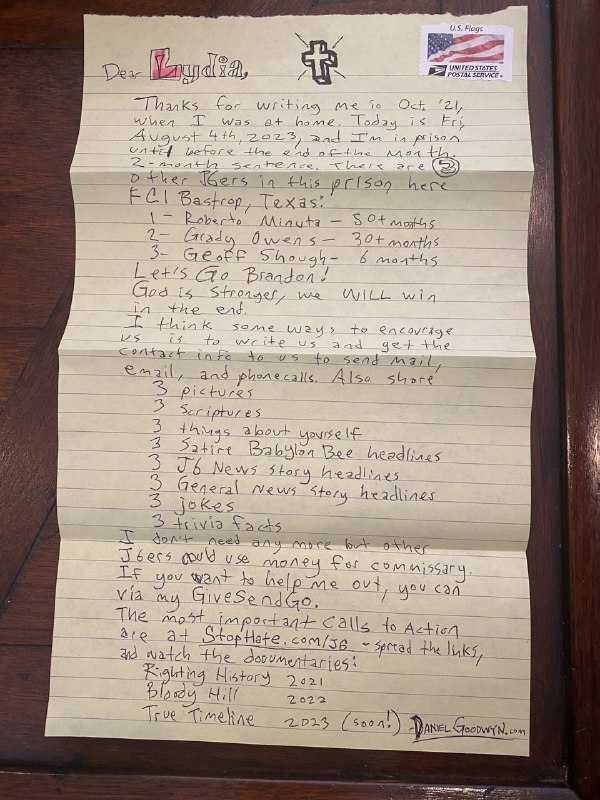 U.S. Flags
UNITED STATES
POSTAL SERVICE®
Dear Lydia,
Thanks for writing me in Oct. '21,
when I was at home. Today is Fri,
August 4th, 2023, and I'm in prison
until before the end of the month,
2-month sentence. There are 3
other J6ers in this prison here
FCI Bastrop, Texas:
1- Roberto Minuta - 50+ months
2- Grady Owens - 30+ months
3- Geoff Shough - 6 months
Let's Go Brandon!
God is stronger, we WILL win
in the end.
I think some ways to encourage
us is to write us and get the
contact info to us to send mail,
email, and phonecalls. Also share
3 pictures
3 scriptures
3 things about yourself
3 Satire Babylon Bee headlines
3 J6 News story headlines
3 General News story headlines
3 jokes
3 trivia facts
I don't need any more but other
J6ers could use money for commissary.
If you want to help me out, you can
via my GiveSendGo.
The most important Calls to Action
are at StopHate.com/J6 - spread the links,
and watch the documentaries:
Righting History 2021
Bloody Hill 2022
True Timeline 2023 (soon!) -DANIELGOODWYN.com